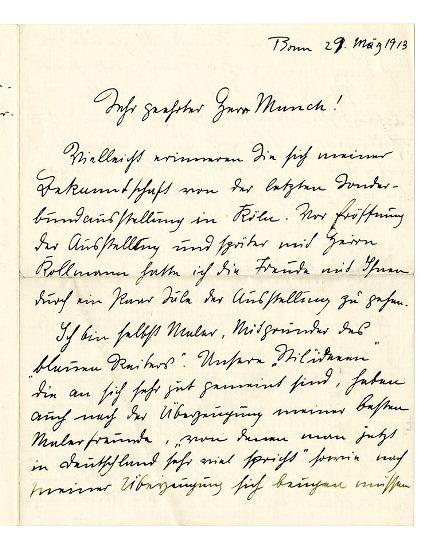 Bonn 29. März 1913
Sehr geehrter Herr Munch!
Vielleicht erinneren Sie sich meiner
Bekanntschaft von der letzten Sonder-
bundausstellung in Köln. Vor Eröffnung
der Ausstellung und später mit Herrn
Kollmann hatte ich die Freude mit Ihnen
durch ein Paar Säle der Ausstellung zu gehen.
Ich bin selbst Maler, Mitgründer des
"blauen Reiters". Unsere "Stilideeen"
die an sich sehr gut gemeint sind, haben
auch nach der Überzeugung meiner besten
Malerfreunde, "von denen man jetzt
in Deutschland sehr viel spricht" sowie nach
meiner Überzeugung sich beugen müssen